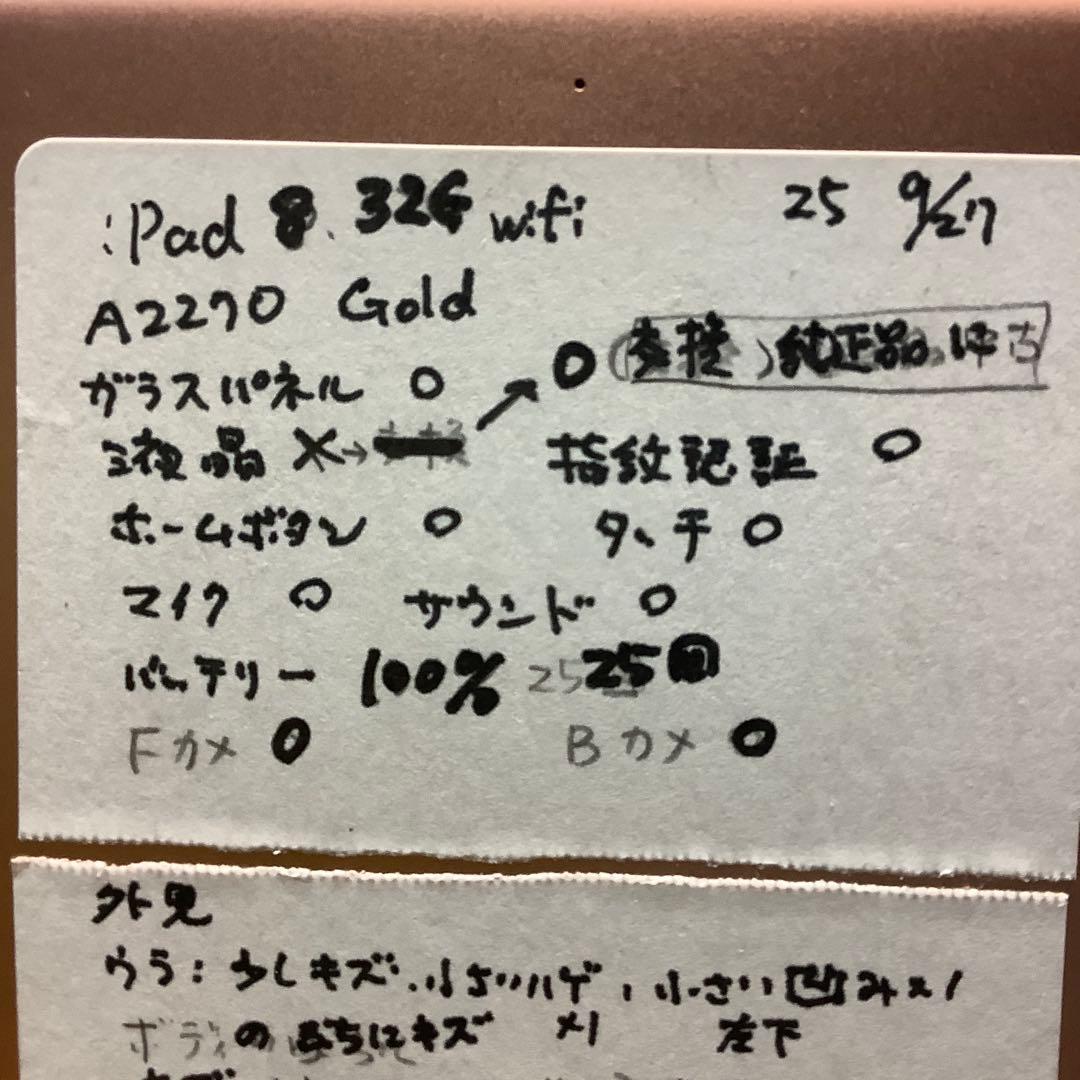 iPad 8. 32G wifi 25 9/27
A2270 Gold
ガラスパネル ○ ○ (交換) 純正品 中古
液晶 ×→ 指紋認証 ○
ホームボタン ○ タッチ ○
マイク ○ サウンド ○
バッテリー 100% 25回
Fカメ ○ Bカメ ○
外見
ウラ: 少しキズ、小さいハゲ、小さい凹み×1
ボディのふちにキズ ×1 左下